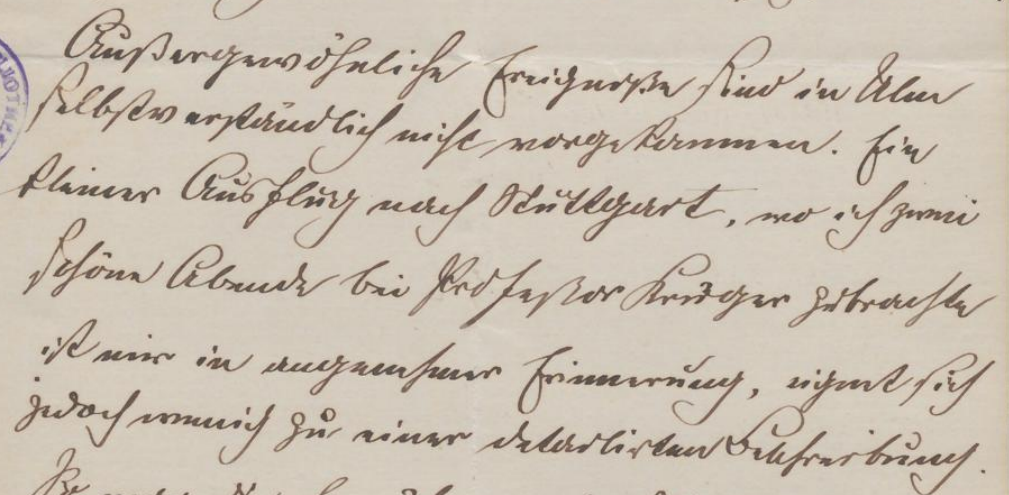 Außergewöhnliche Ereigniße sind in Ulm
selbstverständlich nicht vorgekommen. Ein
kleiner Ausflug nach Stuttgart, wo ich zwei
schöne Abende bei Profeßor Krüger zubrachte
ist mir in angenehmer Erinnerung, eignet sich
jedoch wenig zu einer detaillirten Beschreibung.